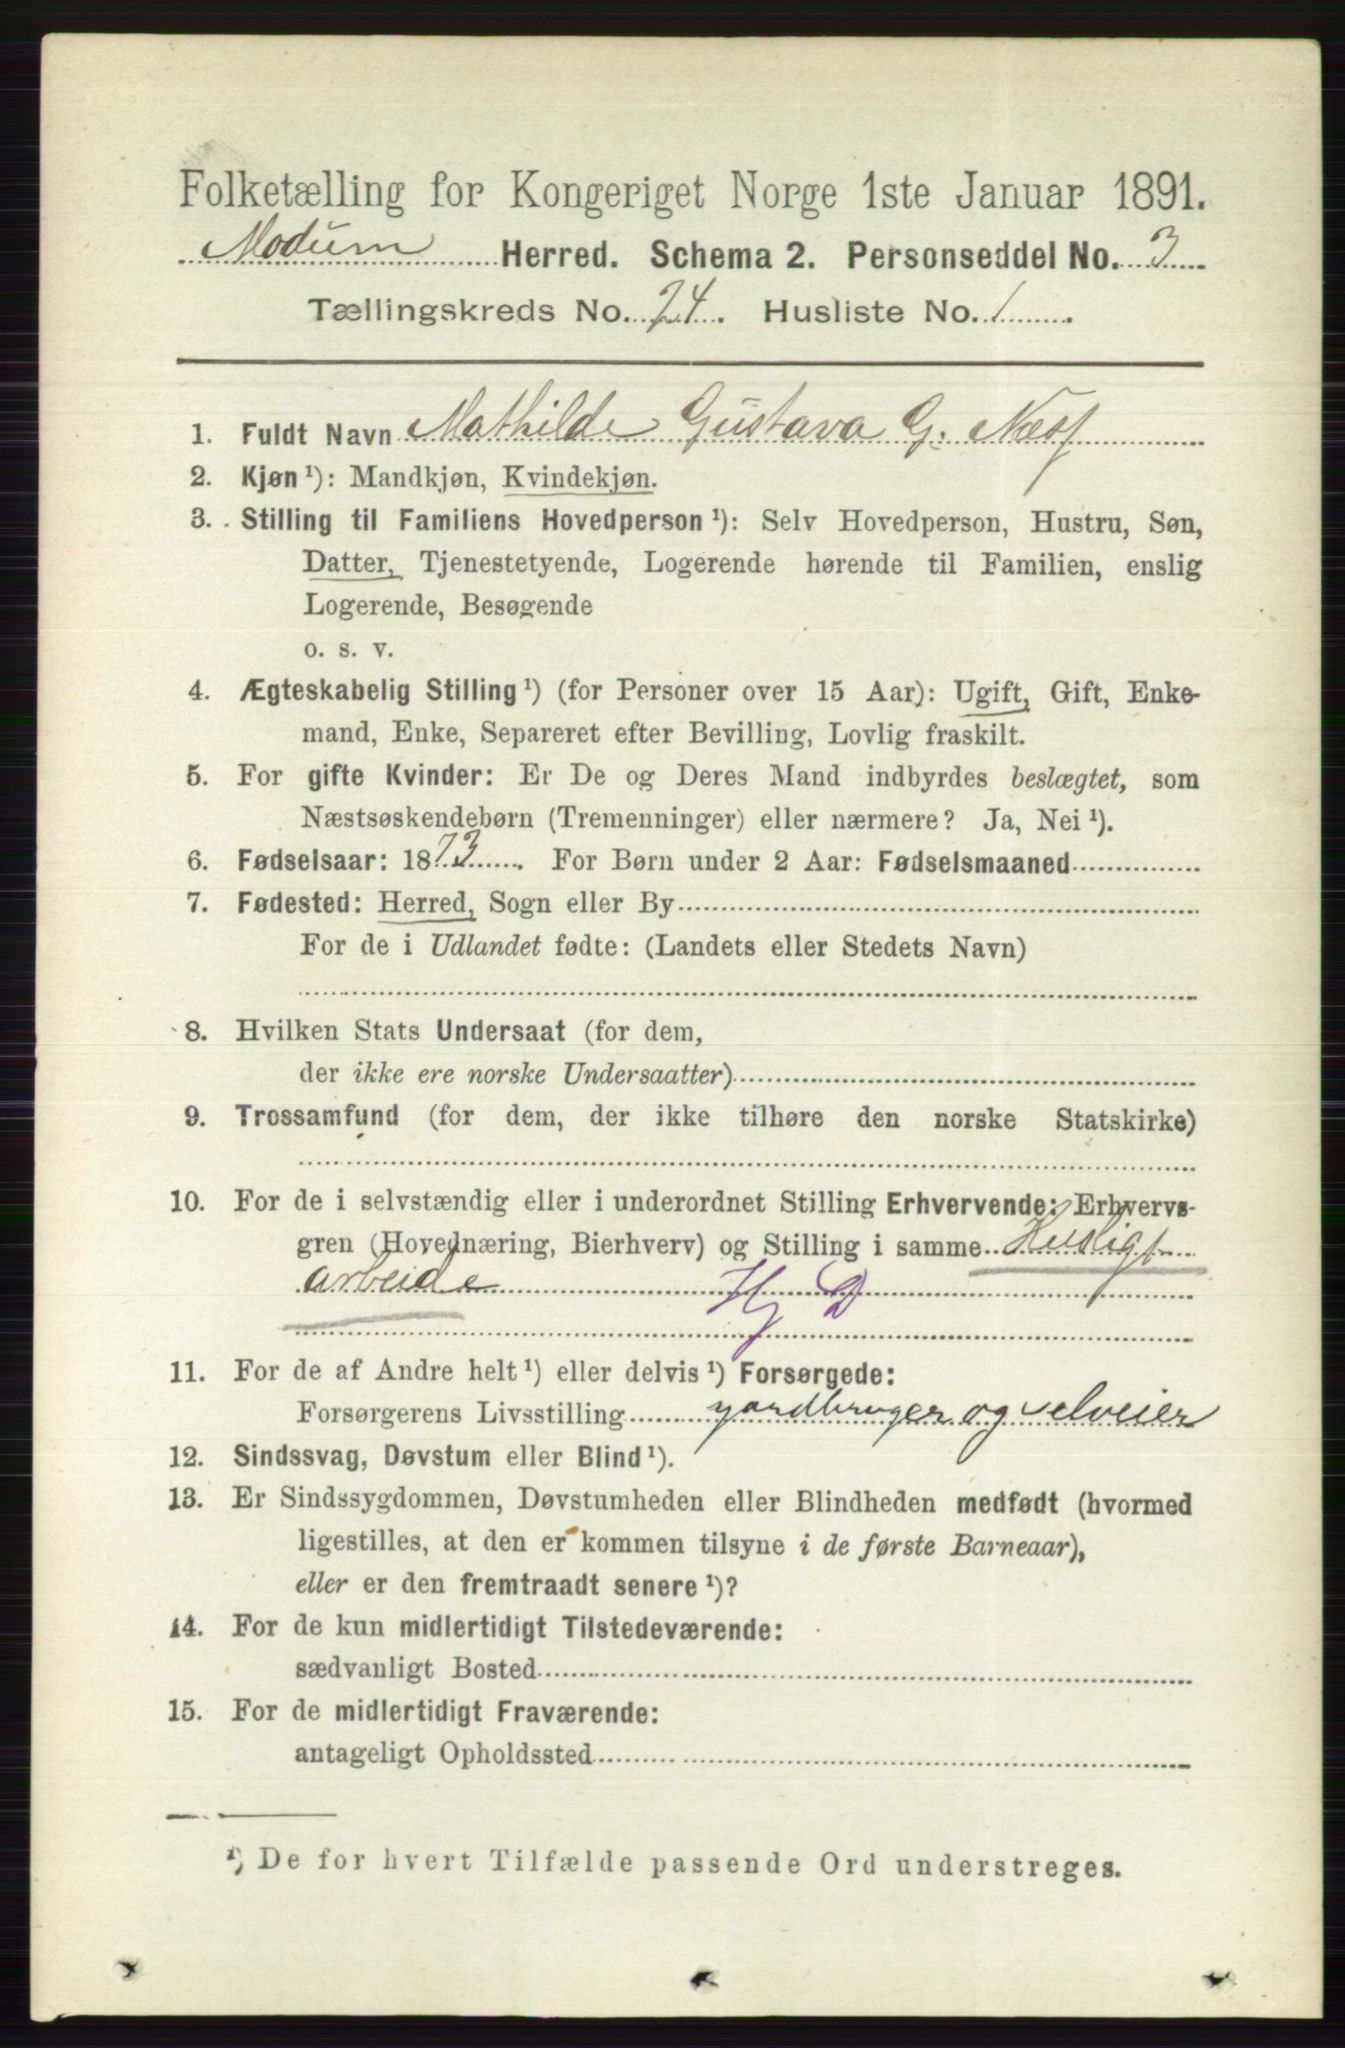 Folketælling for Kongeriget Norge 1ste Januar 1891.
Modum Herred. Schema 2. Personseddel No. 3
Tællingskreds No. 24. Husliste No. 1.
1. Fuldt Navn Mathilde Gustava G. Næss
2. Kjøn ¹): Mandkjøn, Kvindekjøn.
3. Stilling til Familiens Hovedperson ¹): Selv Hovedperson, Hustru, Søn,
Datter, Tjenestetyende, Logerende hørende til Familien, enslig
Logerende, Besøgende
o. s. v.
4. Ægteskabelig Stilling ¹) (for Personer over 15 Aar): Ugift, Gift, Enke-
mand, Enke, Separeret efter Bevilling, Lovlig fraskilt.
5. For gifte Kvinder: Er De og Deres Mand indbyrdes beslægtet, som
Næstsøskendebørn (Tremenninger) eller nærmere? Ja, Nei ¹).
6. Fødselsaar: 1873. For Børn under 2 Aar: Fødselsmaaned
7. Fødested: Herred, Sogn eller By
For de i Udlandet fødte: (Landets eller Stedets Navn)
8. Hvilken Stats Undersaat (for dem,
der ikke ere norske Undersaatter)
9. Trossamfund (for dem, der ikke tilhøre den norske Statskirke)
10. For de i selvstændig eller i underordnet Stilling Erhvervende: Erhvervs-
gren (Hovednæring, Bierhverv) og Stilling i samme Husligt
arbeide Hj D
11. For de af Andre helt ¹) eller delvis ¹) Forsørgede:
Forsørgerens Livsstilling gardbruger og selveier
12. Sindssvag, Døvstum eller Blind ¹).
13. Er Sindssygdommen, Døvstumheden eller Blindheden medfødt (hvormed
ligestilles, at den er kommen tilsyne i de første Barneaar),
eller er den fremtraadt senere ¹)?
14. For de kun midlertidigt Tilstedeværende:
sædvanligt Bosted
15. For de midlertidigt Fraværende:
antageligt Opholdssted
¹) De for hvert Tilfælde passende Ord understreges.